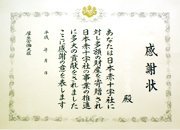 感謝状
殿
あなたは日本赤十字社に
対し多額の財産を寄附され
日本赤十字社の事業の推進
に多大の貢献をされました
ここに感謝の意を表します
平成　年　月　日
厚生労働大臣